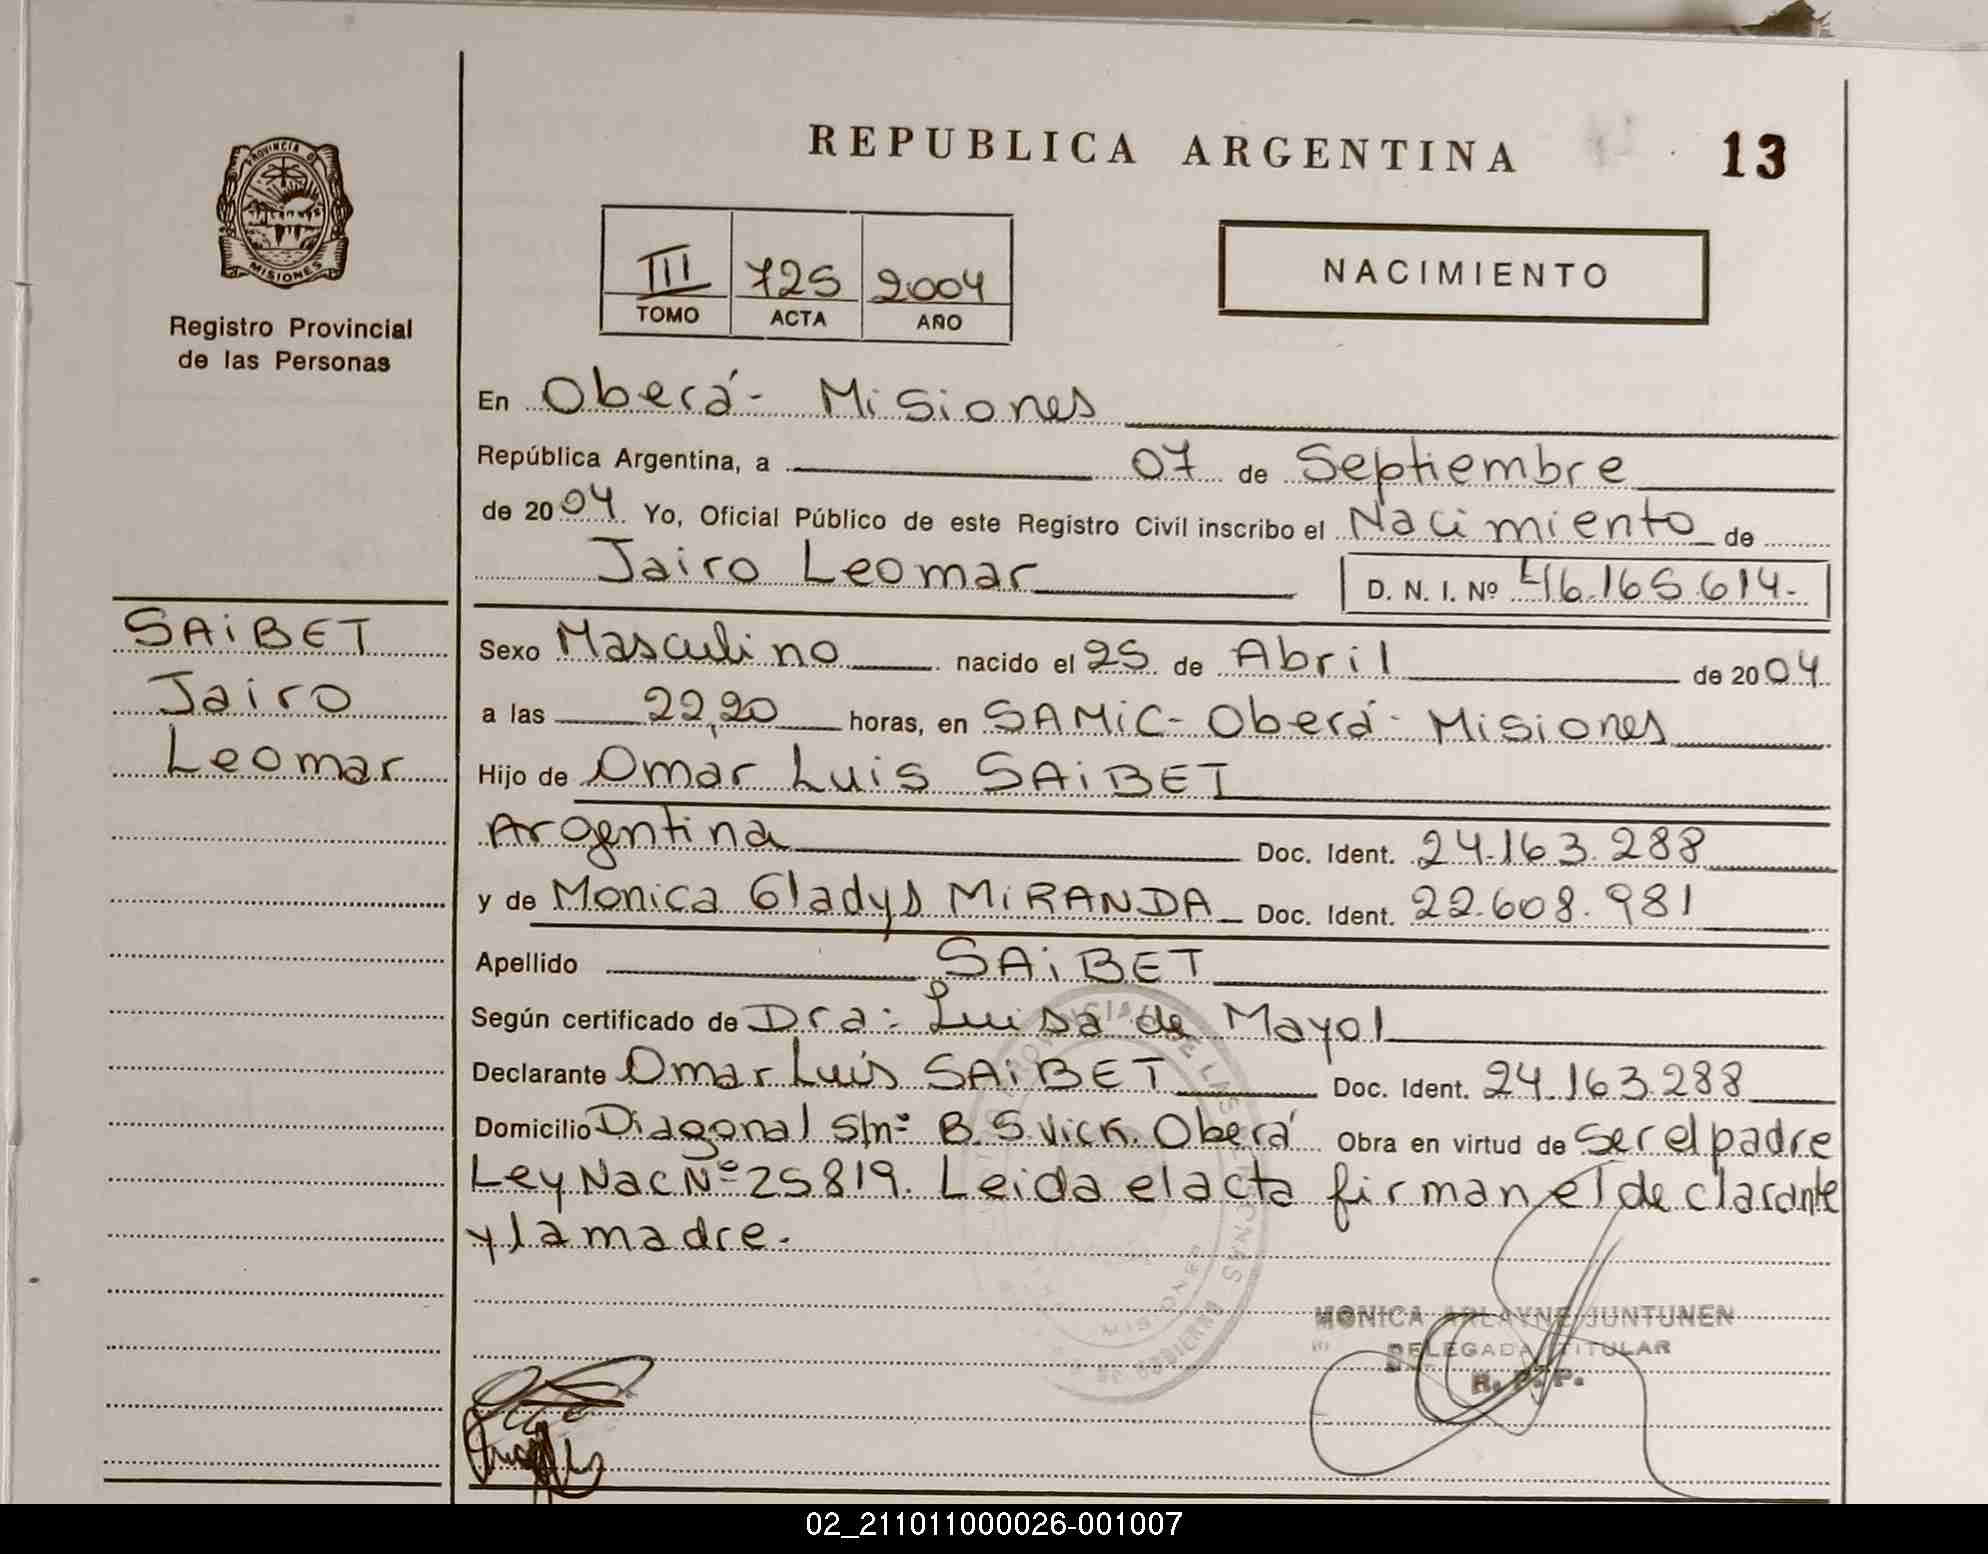 REPUBLICA ARGENTINA
13
PROVINCIA DE
MISIONES
Registro Provincial
de las Personas
III 725 2004
TOMO ACTA AÑO
NACIMIENTO
En Oberá - Misiones
República Argentina, a 07 de Septiembre
de 2004 Yo, Oficial Público de este Registro Civil inscribo el Nacimiento de
Jairo Leomar D. N. I. Nº 46.165.614.-
SAiBET
Jairo
Leomar
Sexo Masculino nacido el 25 de Abril de 2004
a las 22,20 horas, en SAMiC - Oberá - Misiones
Hijo de Omar Luis SAiBET
Argentina Doc. Ident. 24.163.288
y de Monica Gladys MiRANDA Doc. Ident. 22.608.981
Apellido SAiBET
Según certificado de Dra: Luisa de Mayol
Declarante Omar Luis SAiBET Doc. Ident. 24.163.288
Domicilio Diagonal S/nº B. S. Vick. Oberá Obra en virtud de ser el padre
Ley Nac Nº 25819. Leida el acta firman el declarante
y la madre.-
MONICA ARLAYNE JUNTUNEN
DELEGADA TITULAR
R. P. P.
02_211011000026-001007